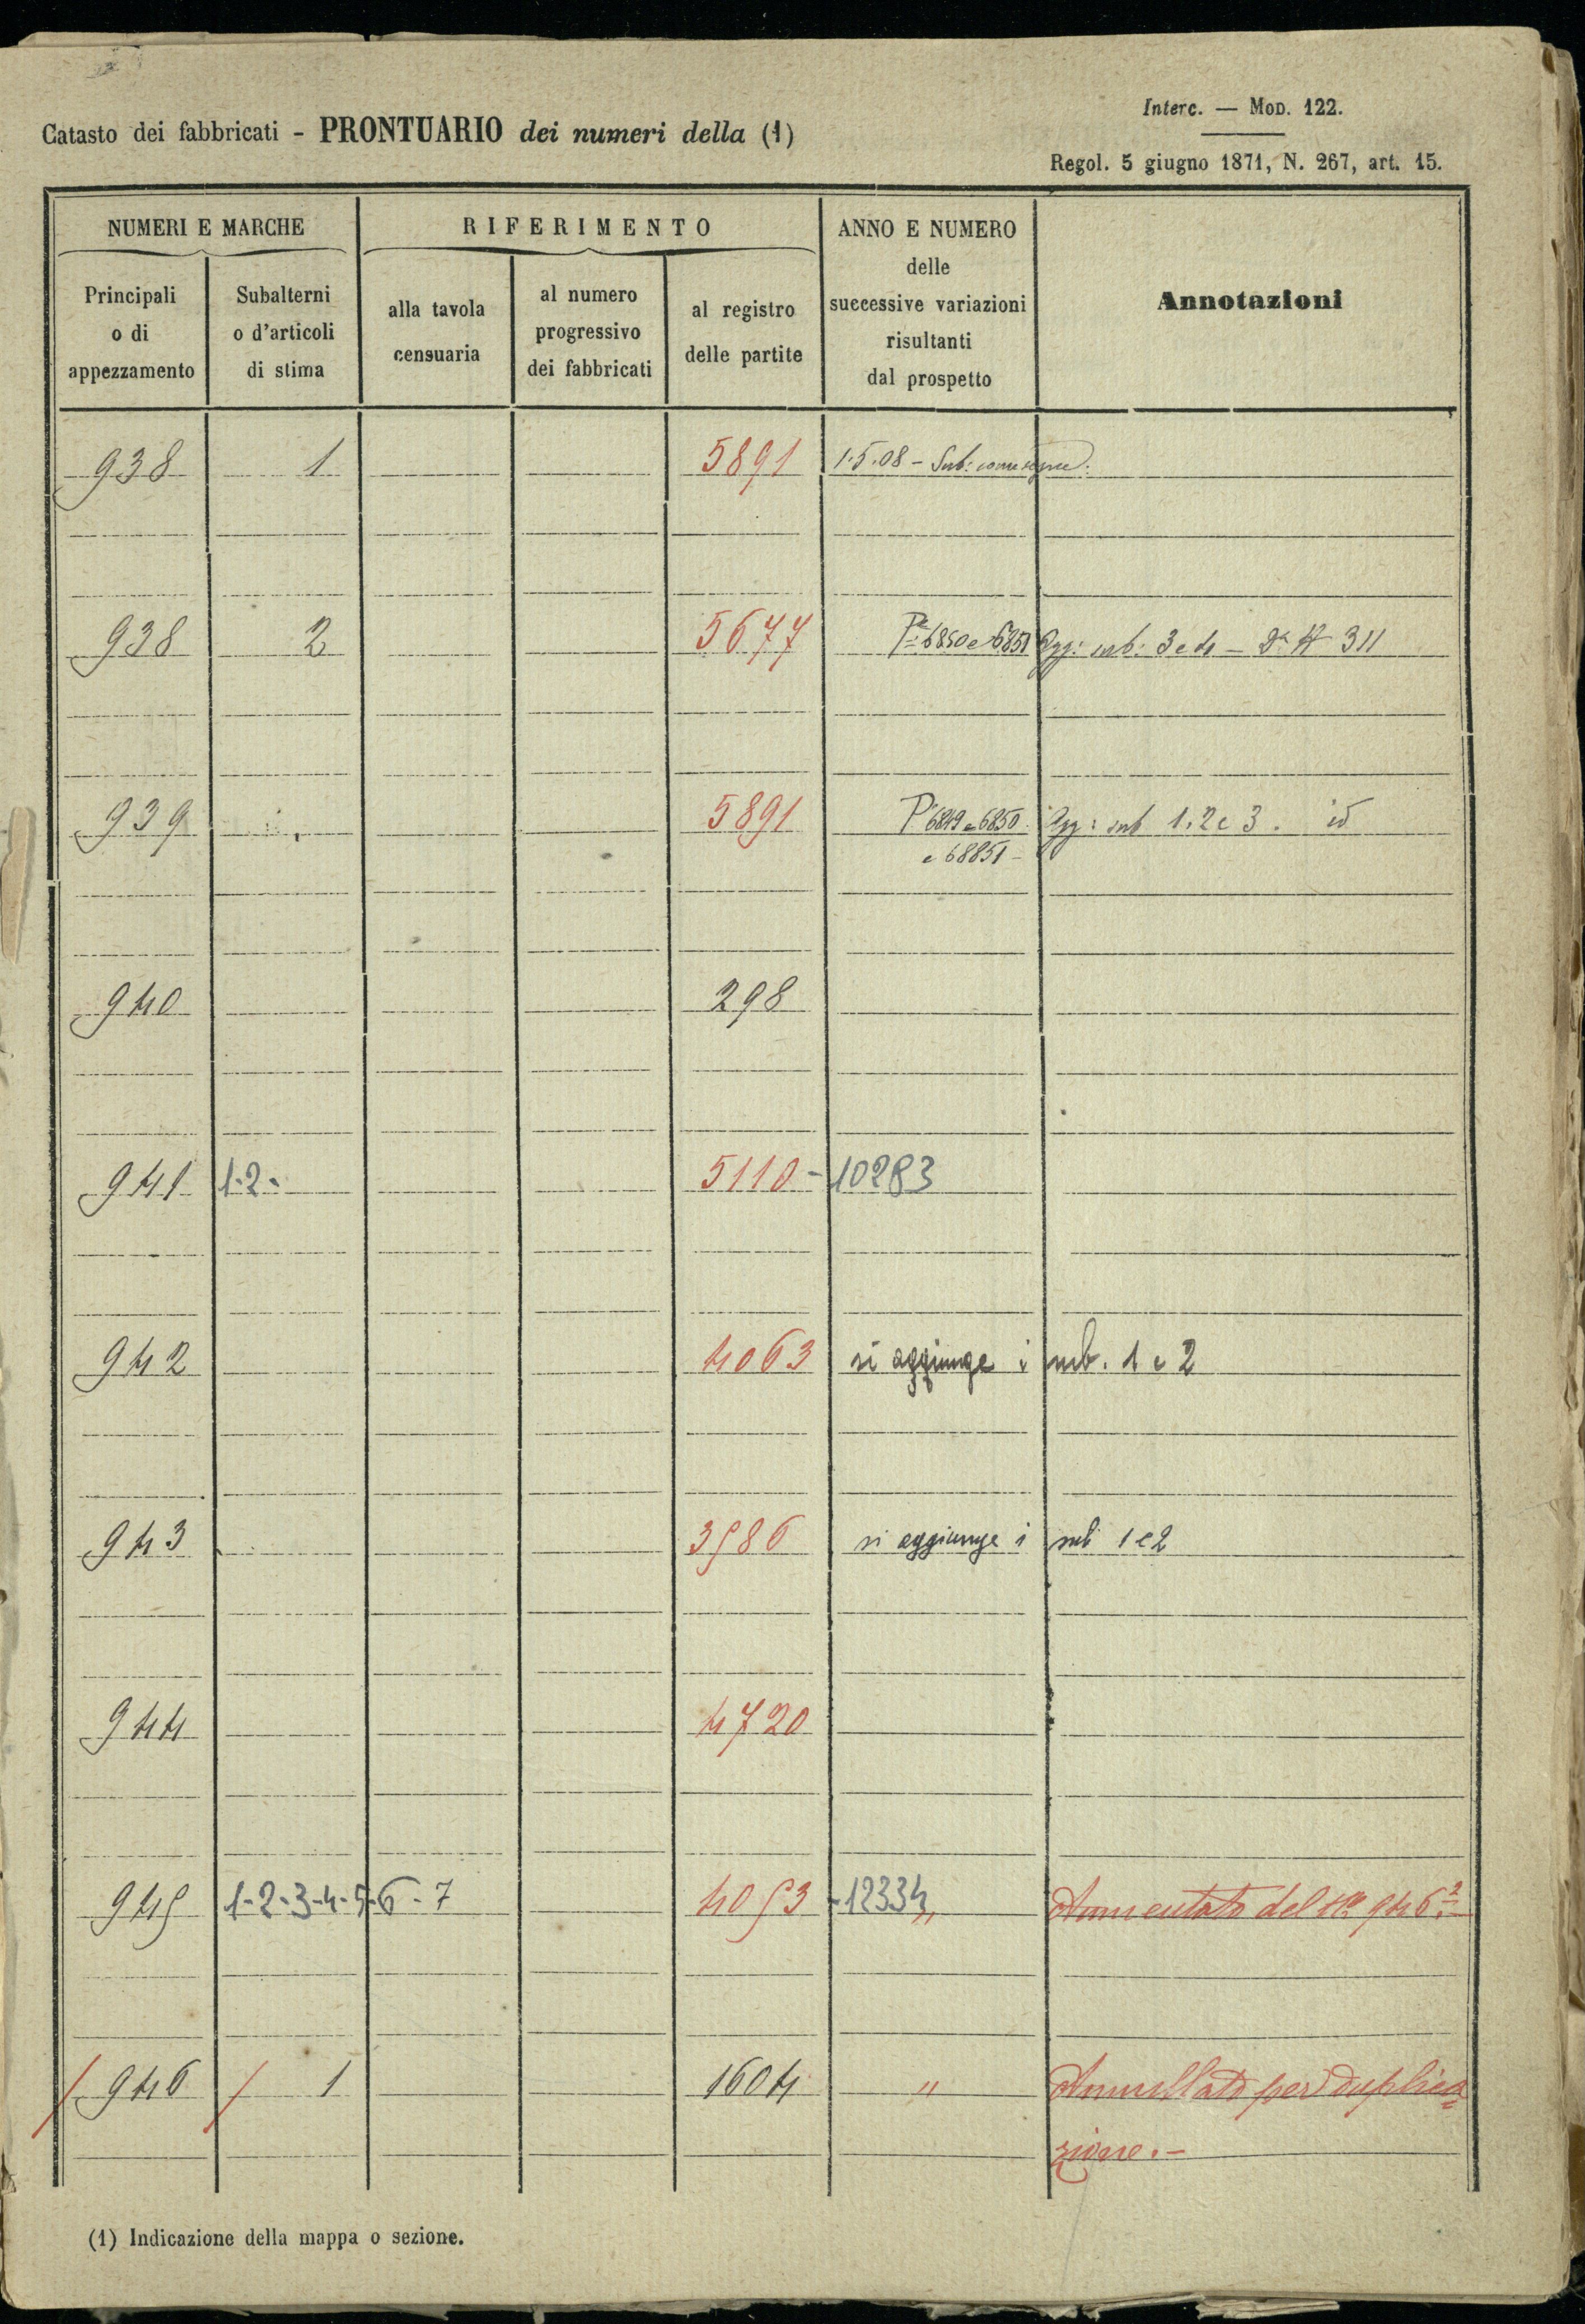 Interc. — Mod. 122.
Catasto dei fabbricati - PRONTUARIO dei numeri della (1)
Regol. 5 giugno 1871, N. 267, art. 15.
NUMERI E MARCHE
RIFERIMENTO
ANNO E NUMERO
delle
successive variazioni
risultanti
dal prospetto
Annotazioni
Principali
o di
appezzamento
Subalterni
o d'articoli
di stima
alla tavola
censuaria
al numero
progressivo
dei fabbricati
al registro
delle partite
938 1 5891 1.5.08 - Sub: come segue:
938 2 5677 Pe: 6850 e 6851 Agg: sub: 3 e 4 - 311
939 5891 P 6849 e 6850 Agg: sub 1.2 e 3. id
e 68851 -
940 298
941 1-2- 5110 - 10283
942 4063 si aggiunge i sub. 1 e 2
943 3986 si aggiunge i sub 1 e 2
944 4720
945 1-2-3-4-5-6-7 4053 - 12334 " Aumentato del No 946.2
946 1 1604 " Annullato per duplica=
zione.-
(1) Indicazione della mappa o sezione.